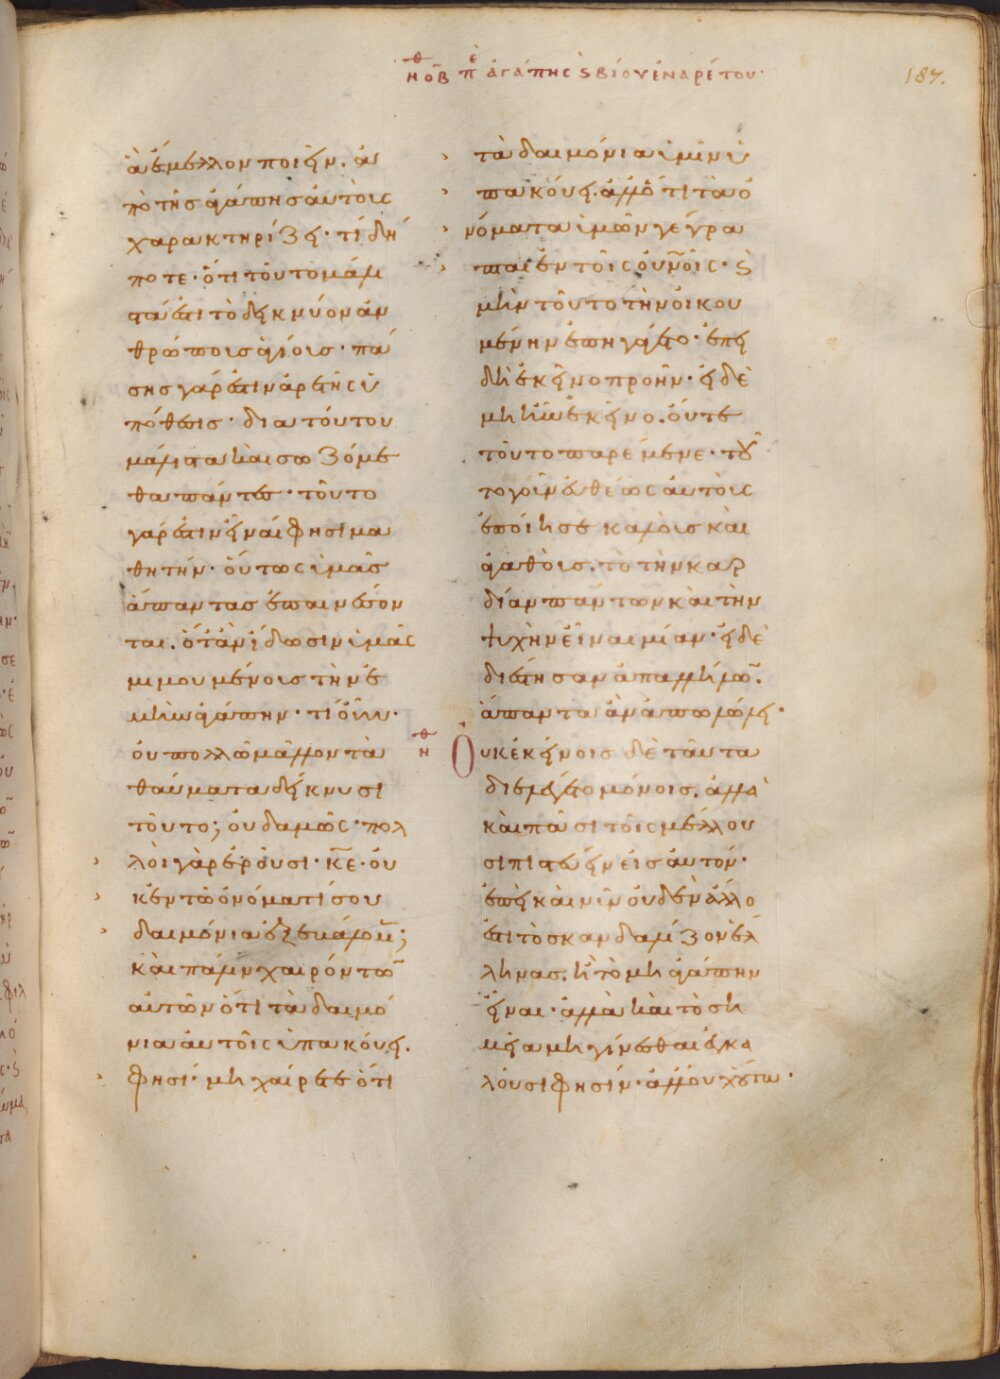 ἠθ ΟΒ πὲ ἀγάπης ϛ βίου ἐναρέτου·
187.
ἃ ἔμελλον ποιεῖν. ἀ
πὸ τῆς ἀγάπης αὐτοὺς
χαρακτηρίζει· τί δή
ποτε· ὅτι τοῦτο μάλι
στά ἐστι τὸ δεικνύον ἀν
θρώποις ἁγίοις· πά
σης γάρ ἐστιν ἀρετῆς ὑ
πόθεσις· διὰ τούτου
μάλιστα καὶ σωζόμε
θα πάντες· τοῦτο
γάρ ἐστιν εἶναί φησι μα
θητήν· οὕτως ὑμᾶς
ἅπαντας ἐπαινέσον
ται. ὅταν ἴδωσιν ὑμᾶς
μιμουμένους τὴν ἐ
μὴν ἀγάπην· τί οὖν·
οὐ πολλῶ μᾶλλον τὰ
θαύματα δείκνυσι
τοῦτο; οὐδαμῶς· πολ
λοὶ γὰρ ἐροῦσι· κε. οὐ
κ ἐν τῶ ὀνόματί σου
δαιμόνια ἐξεβάλομεν;
καὶ πάλιν χαιρόντων
αὐτῶν ὅτι τὰ δαιμό
νια αὐτοῖς ὑπακούει.
φησί· μὴ χαίρετε ὅτι
τὰ δαιμόνια ὑμῖν ὑ
πακούει. ἀλλ' ὅτι τὰ ὀ
νόματα ὑμῶν γέγρα
πται ἐν τοῖς οὐνοῖς· ϛ
μὴν τοῦτο τὴν οἰκου
μένην ἐπηγάγετο· ἐπει
δὴ ἐκεῖνο προῆν· εἰ δὲ
μὴ ἦν ἐκεῖνο. οὔτε
τοῦτο παρέμενε· τοῦ
το γοῦν εὐθέως αὐτοὺς
ἐποίησε καλοὺς καὶ
ἀγαθούς. τὸ τὴν καρ
δίαν πάντων καὶ τὴν
ψυχὴν εἶναι μίαν· εἰ δὲ
διέστησαν ἀπ' ἀλλήλων.
ἅπαντα ἂν ἀπώλωλει·
ἠθ Οὐκ ἐκείνοις δὲ ταῦτα
διελέγετο μόνοις. ἀλλὰ
καὶ πᾶσι τοῖς μέλλου
σι πιστεύειν εἰς αὐτόν·
ἐπεὶ καὶ νῦν οὐδὲν ἄλλο
ἐστὶ τὸ σκανδαλίζον ἕλ
ληνας. ἢ τὸ μὴ ἀγάπην
εἶναι· ἀλλὰ καὶ τὸ ση
μεῖα μὴ γίνεσθαι ἐγκα
λοῦσι φησίν· ἀλλ' οὐχ οὕτω·